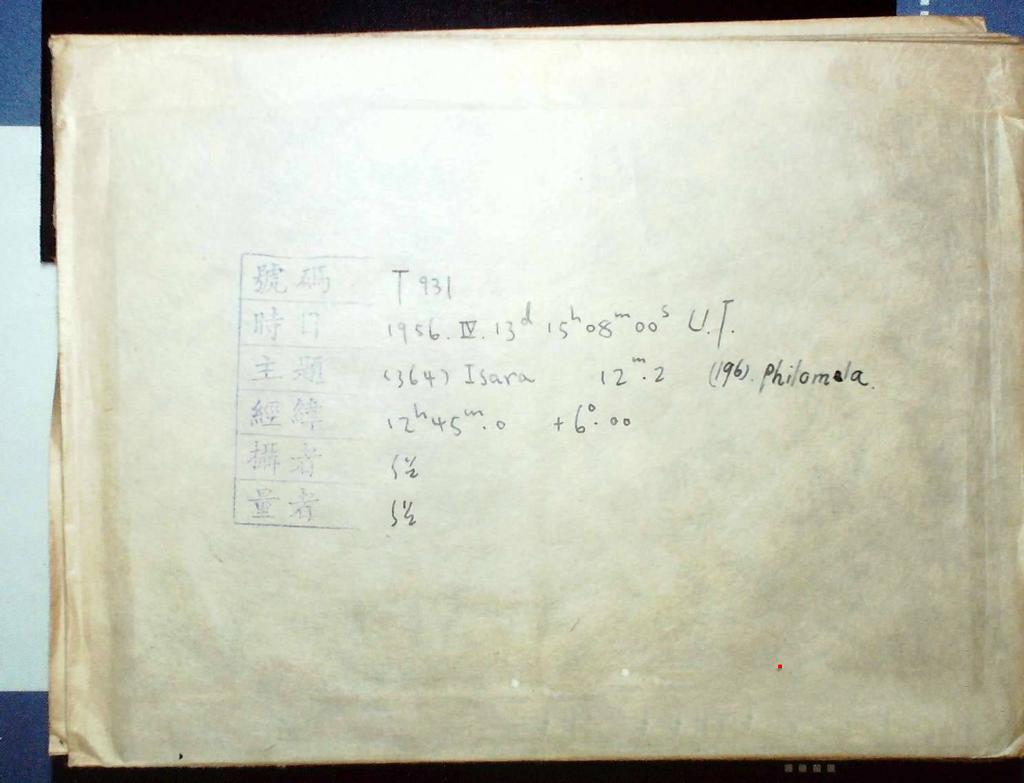 號碼 T 931
時日 1956. Ⅳ. 13ᵈ 15ʰ 08ᵐ 00ˢ U.T.
主題 (364) Isara 12ᵐ.2 (196). Philomela.
經緯 12ʰ45ᵐ.0 +6°.00
攝者
量者